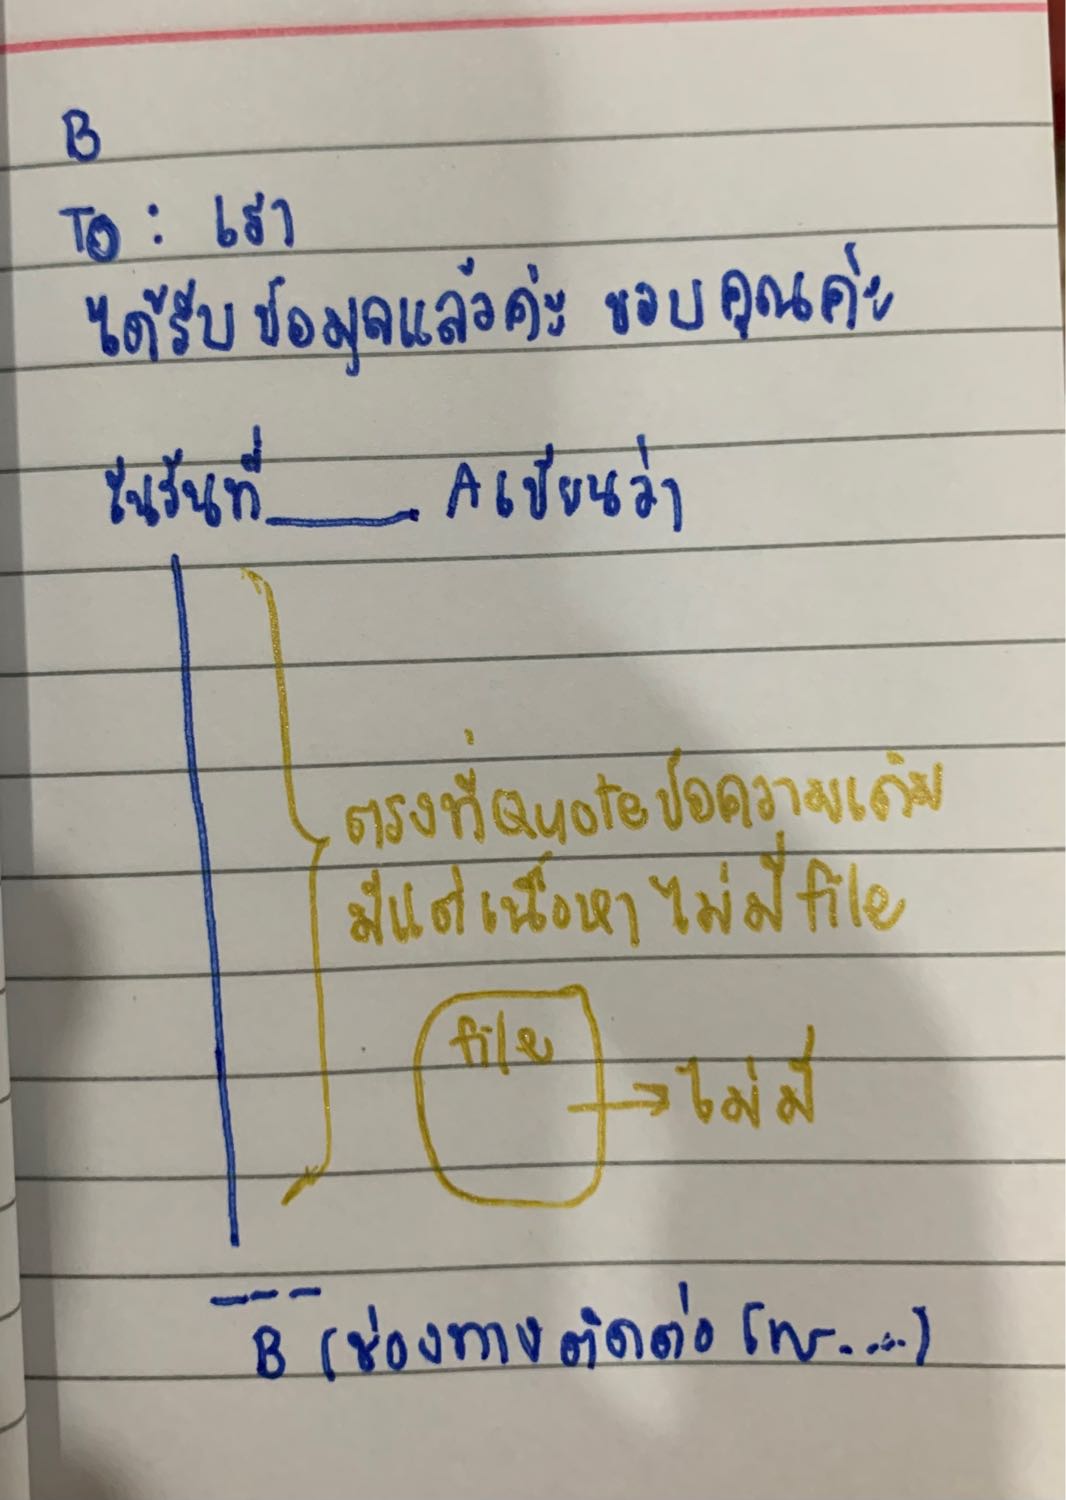 B
To : เรา
ได้รับข้อมูลแล้วค่ะ ขอบคุณค่ะ
ในวันที่______ A เขียนว่า
ตรงที่ Quote ข้อความเดิม
มีแต่เนื้อหา ไม่มี file
file
ไม่มี
B (ช่องทางติดต่อ โทร....)